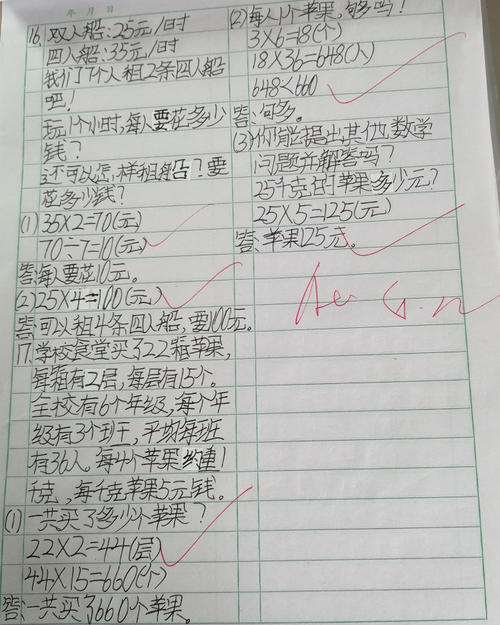 年 月 日
16. 双人船:25元/时
四人船:35元/时
我们7个人租2条四人船
吧!
玩1个小时,每人要花多少
钱?
还可以怎样租船?要
花多少钱?
(1) 35×2=70(元)
70÷7=10(元)
答:每人要花10元。
(2) 25×4=100(元)
答:可以租4条四人船,要100元。
17.学校食堂买了22箱苹果,
每箱有2层,每层有15个。
全校有6个年级,每个年
级有3个班,平均每班
有36人。每4个苹果约重1
千克,每千克苹果5元钱。
(1) 一共买了多少个苹果?
22×2=44(层)
44×15=660(个)
答:一共买了660个苹果。
(2)每人1个苹果,够吗?
3×6=18(个)
18×36=648(个)
648<660
答:句多。
(3)你能提出其他数学
问题并解答吗?
25千克的苹果多少元?
25×5=125(元)
答:苹果125元。